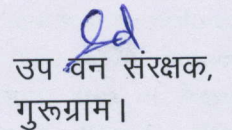 Sd.
उप वन संरक्षक,
गुरूग्राम।